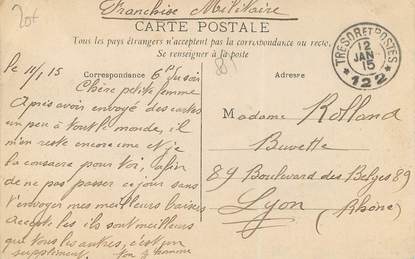 20f
Franchise Militaire
CARTE POSTALE
Tous les pays étrangers n'acceptent pas la correspondance au recto.
Se renseigner à la poste
TRESOR ET POSTES
12
JANV
15
* 122 *
Correspondance
Adresse
le 11/1/15 6h du soir
Chère petite femme
Après avoir envoyé des cartes
un peu à tout le monde, il
m'en reste encore une et je
la consacre pour toi, afin
de ne pas passer ce jour sans
t'envoyer mes meilleurs baisers
accepte les ils sont meilleurs
que tous les autres, c'est un
supplément. ton homme
Madame Rolland
Buvette
89 Boulevard des Belges 89
Lyon (Rhône)